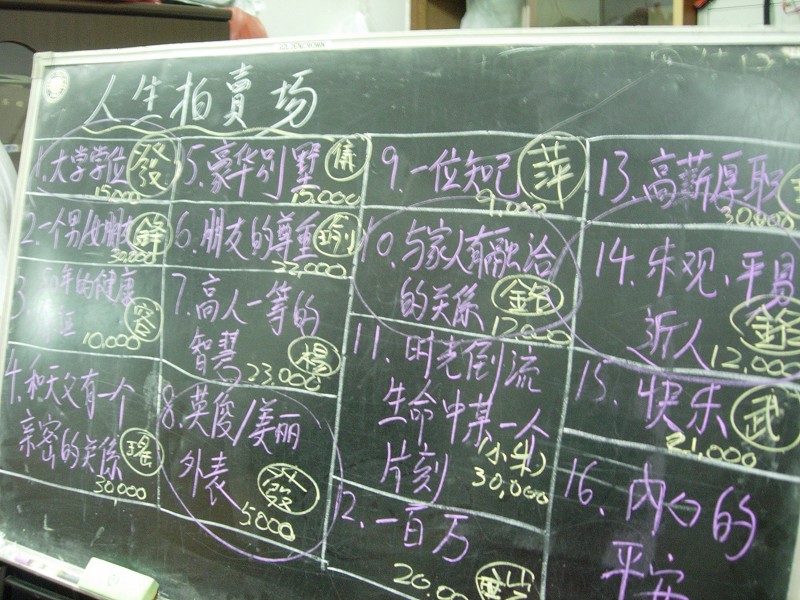 人生拍賣场
1.大学学位
發
15000
2.一个男/女朋友
鋒
30,000
3.50年的健康
10,000
4.和天父有一个
亲密的关係
30000
5.豪华别墅
儀
15,000
6.朋友的尊重
22,000
7.高人一等的
智慧
楊
23,000
8.英俊/美丽
外表
發
5000
9.一位知己
萍
9,000
10.与家人有融洽
的关係
12000
11.时光倒流
生命中某一个
片刻
30,000
12.一百万
20.00
13.高薪厚职
30,000
14.乐观、平易
近人
12,000
15.快乐
武
21,000
16.内心的
平安